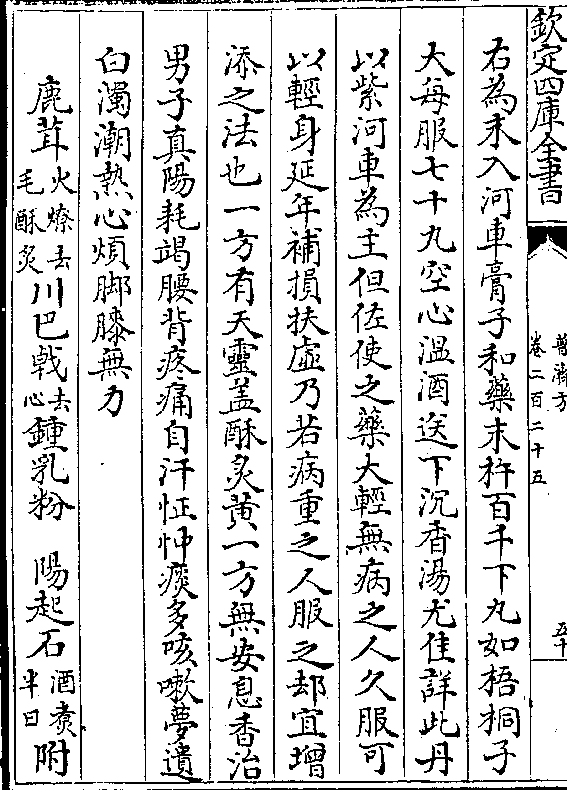 欽定四庫全書
普濟方
卷二百二十五
五十
右為末入河車膏子和藥末杵百千下丸如梧桐子
大每服七十丸空心溫酒送下沉香湯尤佳詳此丹
以紫河車為主但佐使之藥大輕無病之人久服可
以輕身延年補損扶虛乃若病重之人服之却宜增
添之法也一方有天靈盖酥炙黄一方無安息香治
男子真陽耗竭腰背疼痛自汗怔忡痰多咳嗽夢遺
白濁潮熱心煩脚膝無力
鹿茸火燎去毛酥炙川巴戟去心鍾乳粉　陽起石酒煑半日附